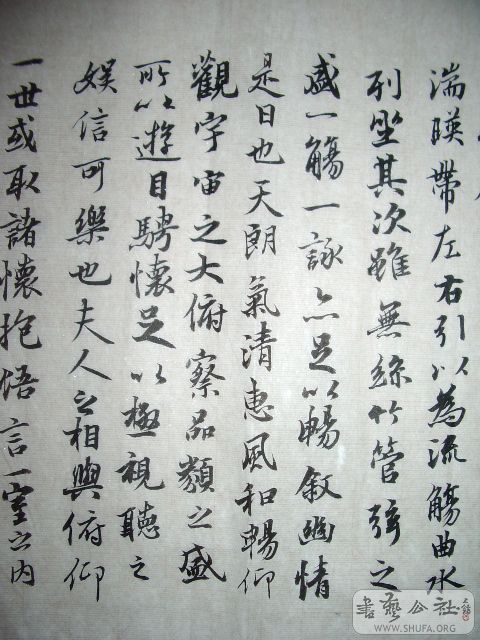 湍暎帶左右引以為流觴曲水
列坐其次雖無絲竹管弦之
盛一觴一詠亦足以暢敘幽情
是日也天朗氣清惠風和暢仰
觀宇宙之大俯察品類之盛
所以遊目騁懷足以極視聽之
娛信可樂也夫人之相與俯仰
一世或取諸懷抱悟言一室之內
書藝公社
WWW.SHUFA.ORG